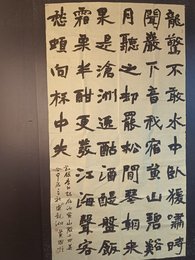 龍驚不敢水中臥猨嘯時
聞巖下音我宿黃山碧谿
月聽之却罷松間琴朝來
果是滄洲逸酤酒醍盤飯
霜栗半酣更發江海聲客
愁頓向杯中失